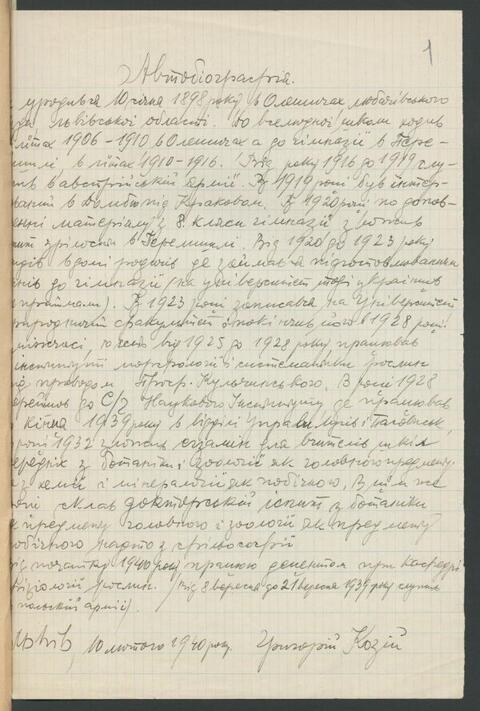 1
Автобіографія.
уродився 10 січня 1898 року в Олешичах любачівського
Львівської области. До вселюдної школи ходив
літах 1906-1910 в Олешичах а до гімназії в Пере-
мишлі в літах 1910-1916. Від року 1916 до 1919 слу-
жив в австрійській армії. В 1919 році був інтер-
нований в Домб'ю під Краковом. В 1920 році по допов-
ненні матеріялу з 8. кляси гімназії зложив
іспит зрілости в Перемишли. Від 1920 до 1923 року
сидів вдома родичів де займався підготовлюванням
учнів до гімназії (на університет тоді українців
не приймали). В 1923 році записався на Університет
природничий факультет і покінчив його в 1928 році.
рівночасі, то є від 1925 до 1928 року працював
інституті морфології і систематики рослин
під проводом Проф. Кульчинського. В році 1928
перейшов до С/Г Наукового Інституту де працював
до кінця 1939 року в відділі управи лук і пасовиск.
році 1932 зложив екзамін для вчителів шкіл
середніх з ботаніки і зоології як головного предмету
а з хемії і мінералогії як побічного. В тім же
році склав докторський іспит з ботаніки
як предмету головного і зоології як предмету
побічного надто з фільософії
від початку 1940 року працюю доцентом при Катедрі
фізіології рослин. (Від 8 вересня до 21 вересня 1939 року служив
польській армії).
Львів, 10 лютого 1940 року. Григорій Козій